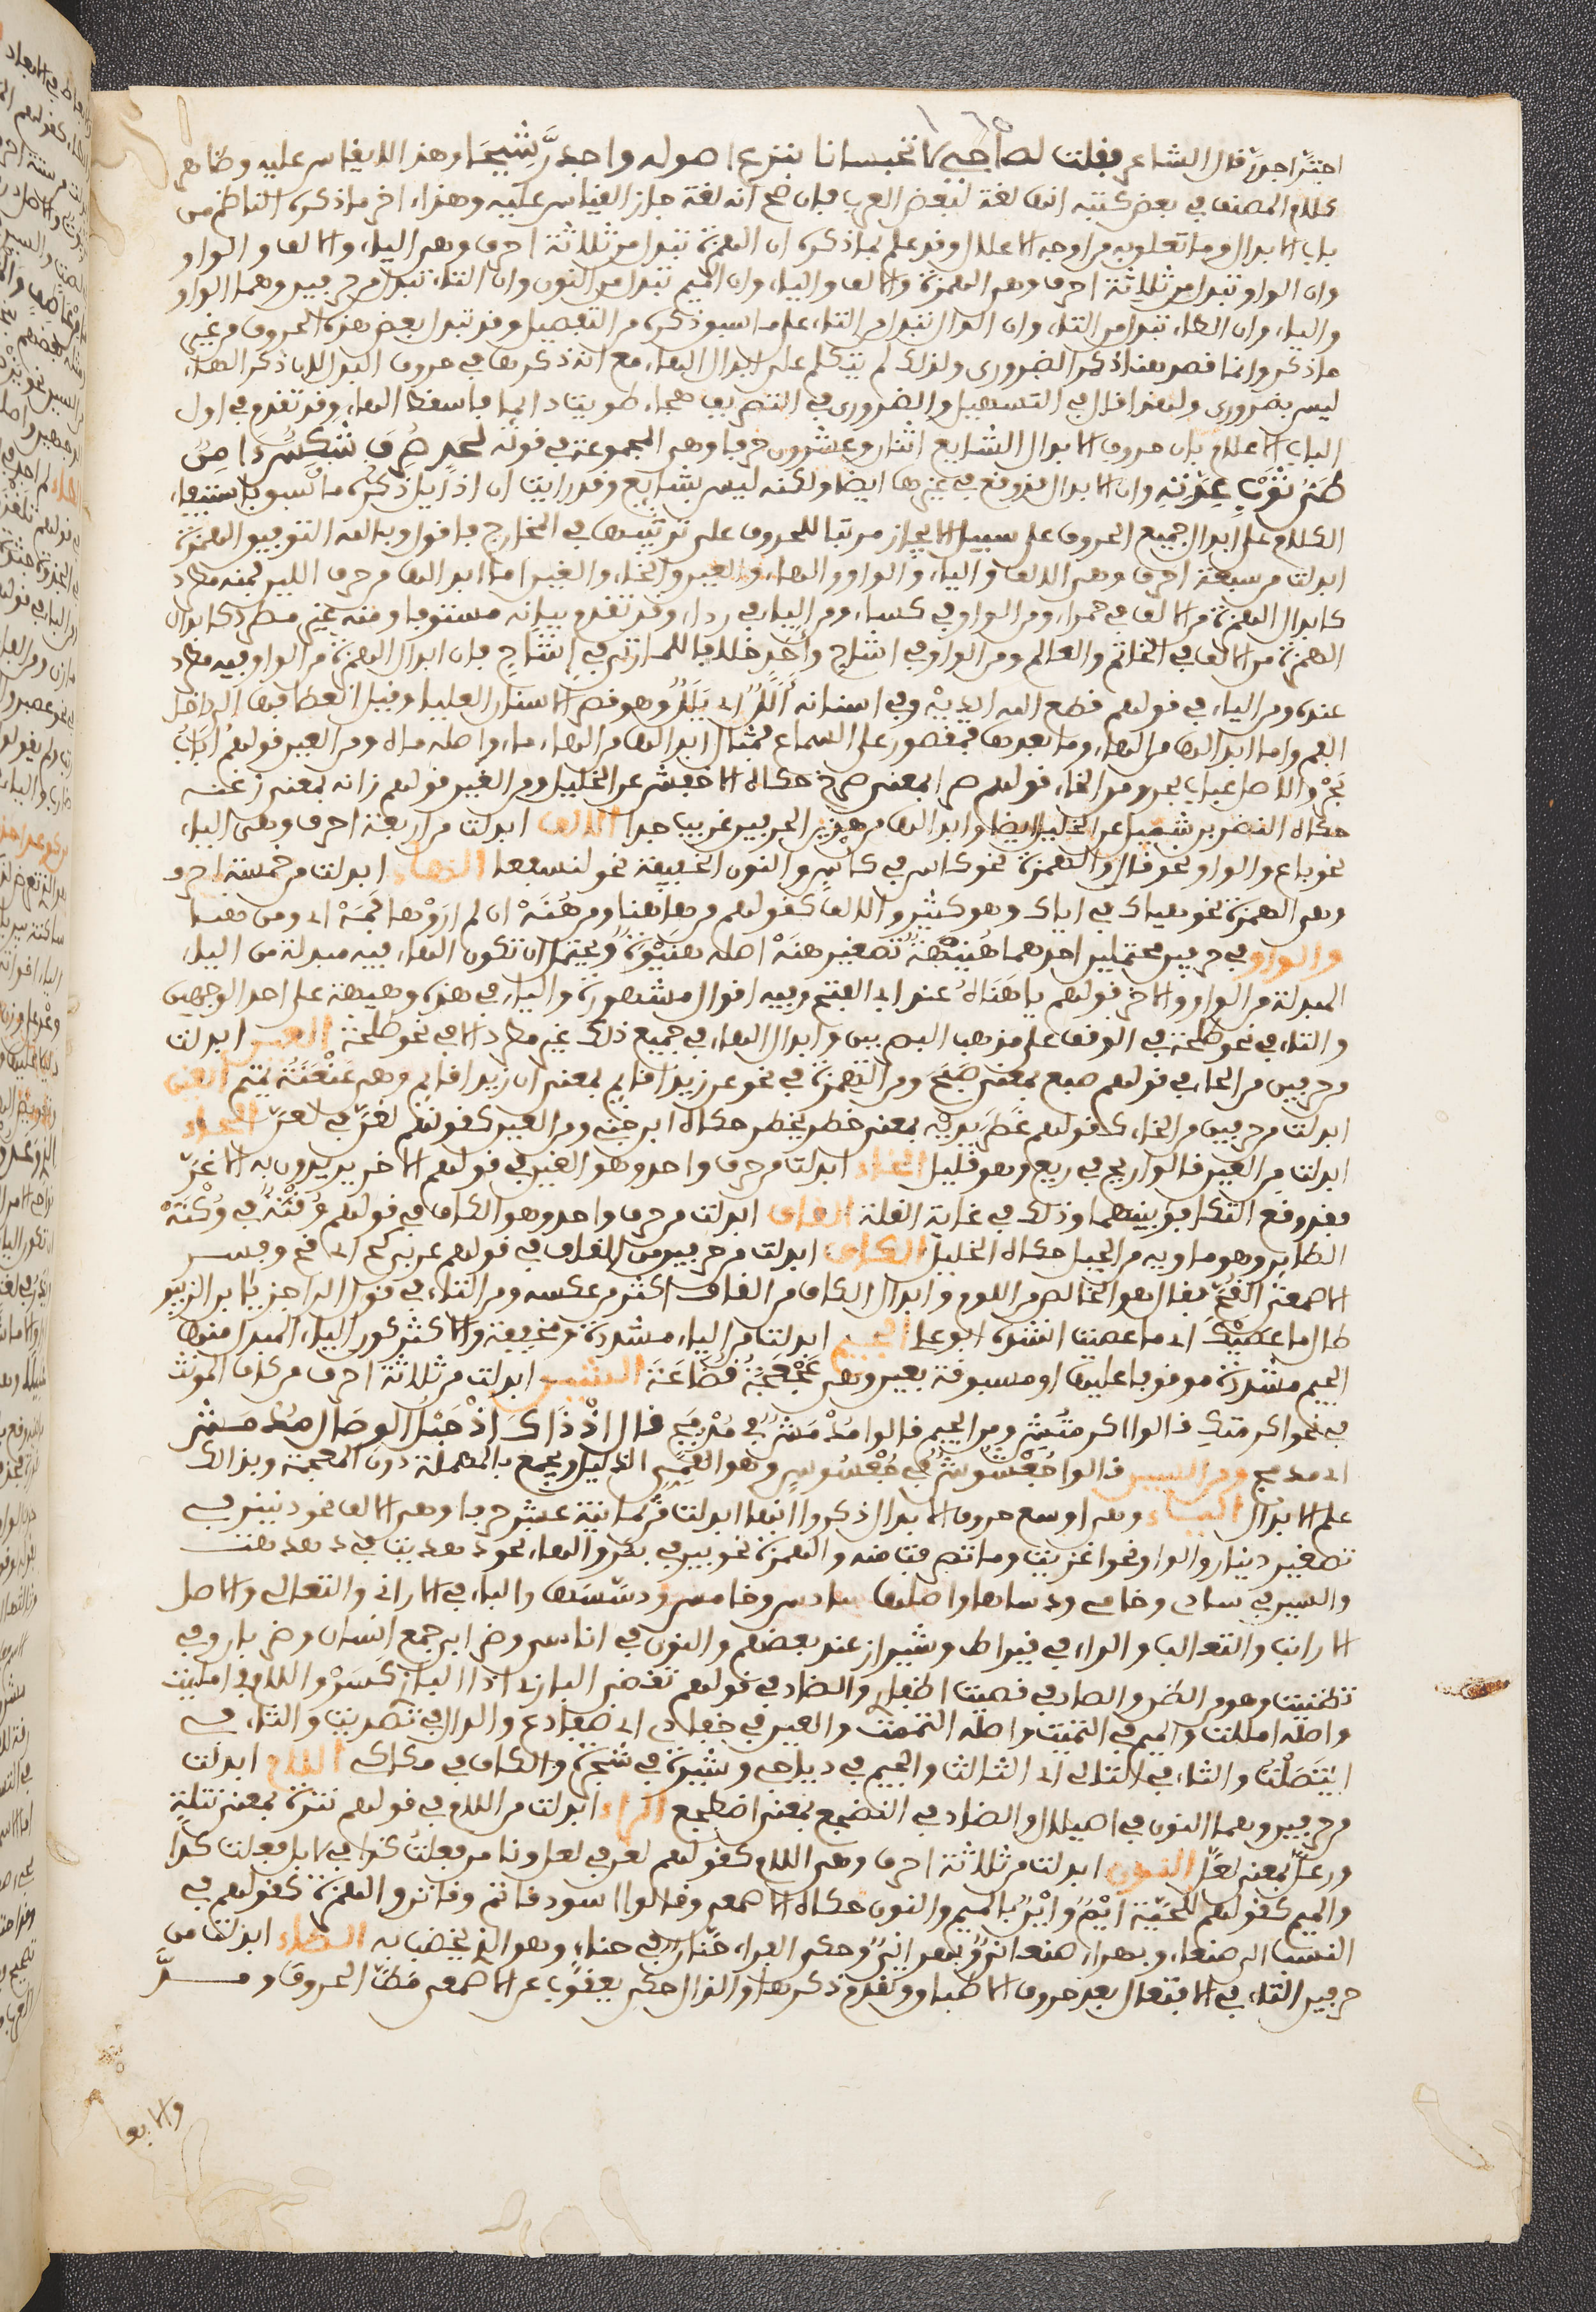 اجتز اجدز قال الشاعر فقلت لصاحبي لا تحبسانا بنزع اصوله واجدز شيحا وهذا لا يقاس عليه وظاهر
كلام المصنف في بعض كتبه انها لغة لبعض العرب فان صح انه لغة جاز القياس عليه وهذا ءاخر ما ذكره الناظم من
باب الابدال وما تعلق به من اوجه الاعلال وقد علم بما ذكره ان الهمزة تبدل من ثلاثة احرف وهي الياء والالف والواو
وان الواو تبدل من ثلاثة احرف وهي الهمزة والالف والياء وان الميم تبدل من النون وان التاء تبدل من حرفين وهما الواو
والياء وان الطاء تبدل من التاء وان الدال تبدل من التاء على ما سبق ذكره من التفصيل وقد تبدل بعض هذه الحروف من غير
ما ذكر وانما قصد هنا ذكر الضروري ولذلك لم يتكلم على ابدال الهاء مع انه ذكرها في حروف البدل لان ذكر الهاء
ليس بضروري ولهذا قال في التسهيل والضروري في التصريف هجاء طويت دائما فاسقط الهاء وقد تقدم في اول
الباب الاعلام بان حروف الابدال الشايع اثنان وعشرون حرفا وهي المجموعة في قوله لجد صرف شكس ءامن
طي ثوب عزته وان الابدال قد وقع في غيرها ايضا ولكنه ليس بشايع وقد رايت ان اذيل ذكره ما سبق باستيفاء
الكلام على ابدال جميع الحروف على سبيل الايجاز مرتبا للحروف على ترتيبها في المخارج فاقول وبالله التوفيق الهمزة
ابدلت من سبعة احرف وهي الالف والياء والواو والهاء والعين والخاء والغين اما ابدالها من حرف اللين فمنه مطرد
كابدال الهمزة من الالف في حمراء ومن الواو في كساء ومن الياء في رداء وقد تقدم بيانه مستوفا ومنه غير مطرد كابدال
الهمزة من الالف في الخاتم والعالم ومن الواو في اشاح وأحد خلافا للمازني في إشاح فان ابدال الهمزة من الواو فيه مطرد
عنده ومن الياء في قولهم قطع الله اديه وفي اسنانه ألل اي يلل وهو قصر الاسنان العليا وقيل انعطافها الى داخل
الفم واما ابدالها من الهاء وما بعدها فمقصور على السماع فمثال ابدالها من الهاء ماء واصله ماه ومن العين قولهم اباب
بحر والاصل عباب بحر ومن الخاء قولهم صرا بمعنى صرخ حكاه الاخفش عن الخليل ومن الغين قولهم رانه بمعنى رغنه
حكاه النضر بن شميل عن الخليل ايضا وابدالها من هذين الحرفين غريب جدا الالف ابدلت من اربعة احرف وهي الياء
نحو باع والواو نحو قال والهمزة نحو كاس في كأس والنون الخفيفة نحو لنسفعا الهاء ابدلت من خمسة احرف
وهي الهمزة نحو هياك في اياك وهو كثير والالف كقولهم من هاهنا ومن هنه ان لم اروها فمه اي ومن هنا
والواو في حرفين محتملين احدهما هنيهة تصغير هنة اصله هنيوة ويحتمل ان تكون الهاء فيه مبدلة من الياء
المبدلة من الواو والاخر قولهم يا هناه عند ابي الفتح وفيه اقوال مشهورة والياء في هذه وهيهة على احد الوجهين
والتاء في نحو طلحة في الوقف على مذهب البصريين وابدال الهاء في جميع ذلك غير مطرد الا في نحو طلحة العين ابدلت
من حرفين من الحاء في قولهم ضبع بمعنى ضبح ومن الهمزة في نحو عن زيدا قايم بمعنى ان زيدا قايم وهي عنعنة تميم الغين
ابدلت من حرفين من الخاء كقولهم غطر بيديه بمعنى خطر يخطر حكاه ابن جني ومن العين كقولهم لغن في لعن الحاء
ابدلت من العين قالوا ربح في ربع وهو قليل الخاء ابدلت من حرف واحد وهو الغين في قولهم الاخن يريدون به الاغن
فقد وقع التكافؤ بينهما وذلك في غاية القلة القاف ابدلت من حرف واحد وهو الكاف في قولهم وقنة في وكنة
الطاير وهو ماويه من الجبل حكاه الخليل الكاف ابدلت من حرفين من القاف في قولهم عربي كح اي قح وفسر
الاصمعي القح فقال هو الخالص من اللوم وابدال الكاف من القاف اكثر من عكسه ومن التاء في قول الراجز يا ابن الزبير
طال ما عصيكا اي ما عصيت انشده ابو علي الجيم ابدلت من الياء مشددة ومخففة والاكثر كون الياء المبدل منها
الجيم مشددة موقوفا عليها او مسبوقة بعين وهي عجعجة قضاعة الشين ابدلت من ثلاثة احرف من كاف المونث
في نحو اكرمتك قالوا اكرمتش ومن الجيم قالوا مدمش في مدمج قال اذ ذاك اذ حبل الوصال مدمش
اي مدمج ومن السين قالوا جعشوش في جعسوس وهو القمي الذليل ويجمع بالمهملة دون المعجمة وبذلك
علم الابدال الياء وهي اوسع حروف الابدال ذكروا انها ابدلت من ثمانية عشر حرفا وهي الالف نحو دنينير في
تصغير دينار والواو نحو اغزيت وما تصرف منه والهمزة نحو بير في بئر والهاء نحو دهديت في دهدهت
والسين في سادي وخامي ودساها واصلها سادس وخامس ودسسها والباء في الاراني والثعالي والاصل
الارانب والثعالب والراء في قيراط وشيراز عند بعضهم والنون في اناسي وظرابي جمع انسان وظربان وفي
تظنيت وهو من الظن والصاد في قصيت اظفاري والضاد في قولهم تقضي البازي اذا البازي كسر واللام في امليت
واصله امللت والميم في ائتميت واصله ائتممت والعين في ضفادي اي ضفادع والدال في تصديت والتاء في
ايتصلت والثاء في الثالي اي الثالث والجيم في دياجي وشيرة في شجرة والكاف في مكاكي اللام ابدلت
من حرفين وهما النون في اصيلال والضاد في الطجع بمعنى اضطجع الراء ابدلت من اللام في قولهم نثرة بمعنى نثلة
ورعل بمعنى لعل النون ابدلت من ثلاثة احرف وهي اللام كقولهم لعن في لعل ونا من فعلت كذا في لا بل فعلت كذا
والميم كقولهم للحية ايم واين بالميم والنون حكاه الاصمعي وقالوا اسود قاتم وقاتن والهمزة كقولهم في
النسب الى صنعاء وبهراء صنعاني وبهراني وحكى الفراء حنان في حناء وهو الذي يخضب به الطاء ابدلت من
حرفين التاء في الافتعال بعد حروف الاطباق وتقدم ذكرها والدال حكى يعقوب عن الاصمعي مط الحروف ومد
والابعا